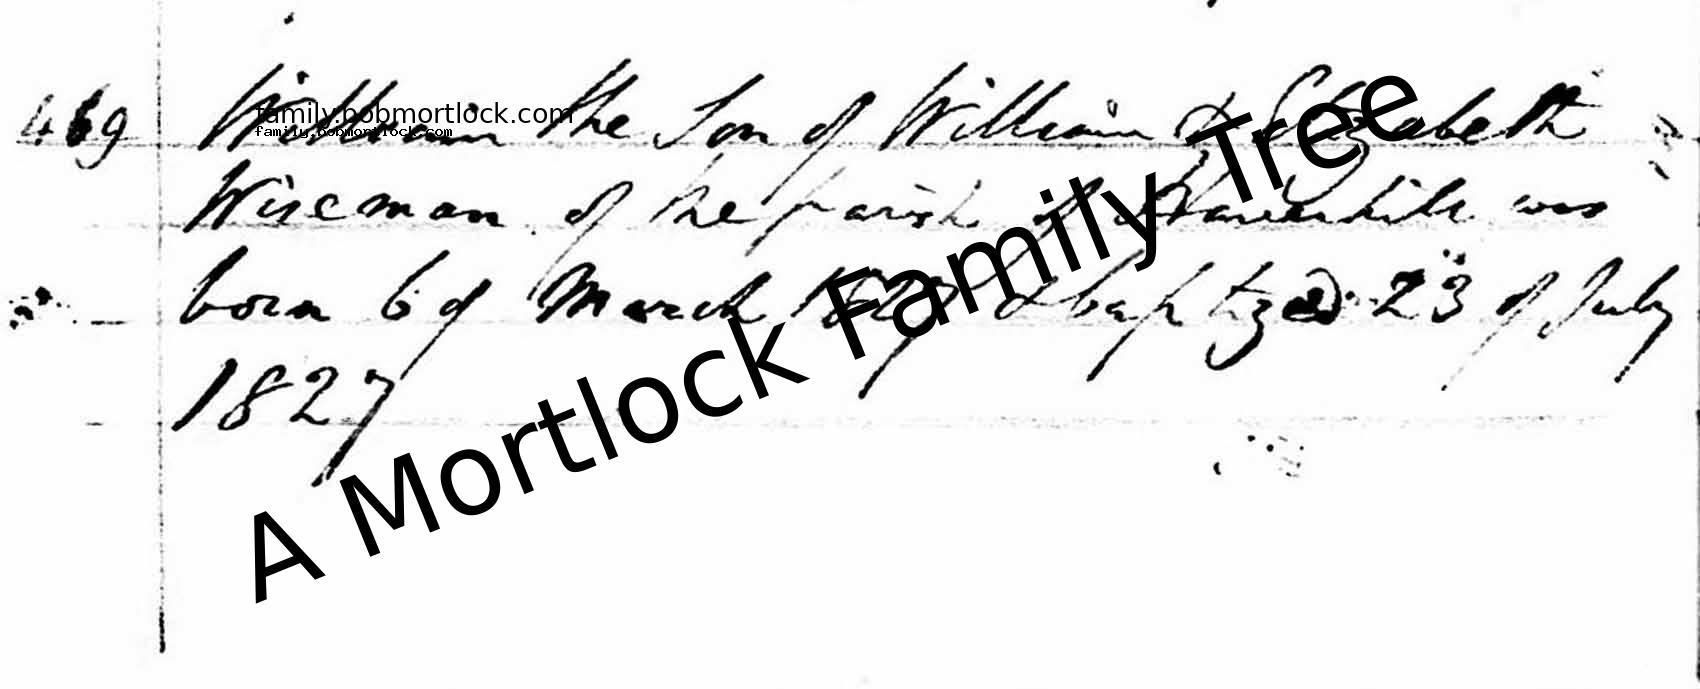 469 William the Son of William & Elizabeth
Wiseman of the parish of Haverhill was
born 6 of March 1827 & baptized 23 of July
1827
family.bobmortlock.com
family.bobmortlock.com
A Mortlock Family Tree